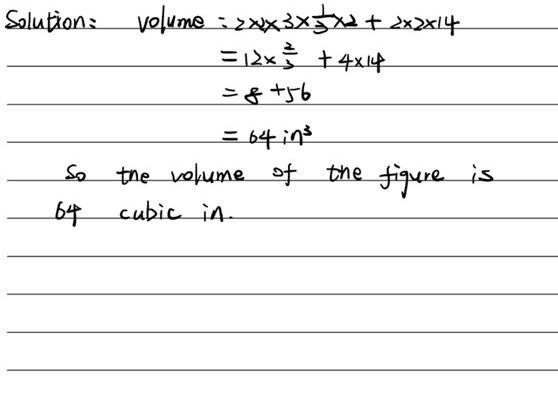 Solution: volume = 2×2×3×\frac{1}{3}×2 + 2×2×14
= 12×\frac{2}{3} + 4×14
= 8 + 56
= 64 in³
So the volume of the figure is
64 cubic in.